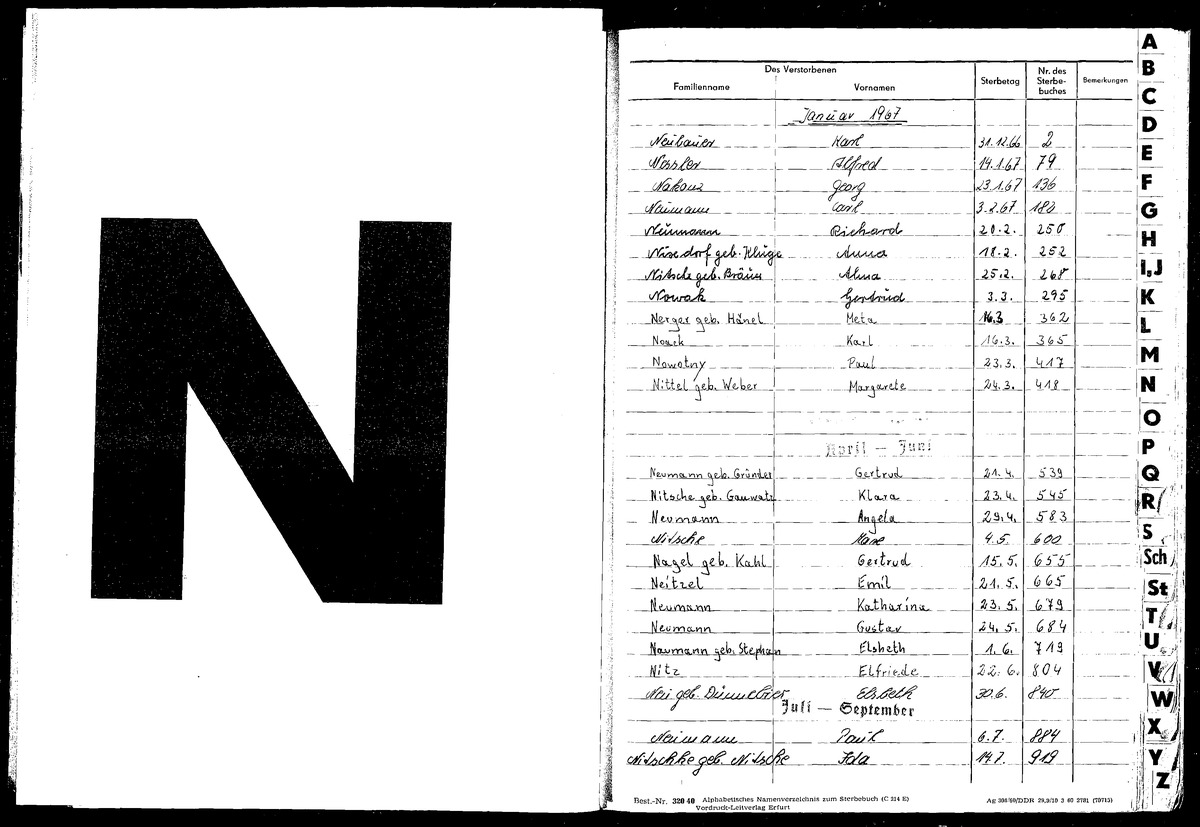 N
Des Verstorbenen
Familienname Vornamen Sterbetag Nr. des Sterbe-buches Bemerkungen
Januar 1967
Neubauer Karl 31.12.66 2
Nossler Alfred 14.1.67 79
Georg 23.1.67 136
Neumann Carl 3.2.67 182
Neumann Richard 20.2. 250
geb. Kluge Anna 18.2. 252
Nitsche geb. Bräuer Alma 25.2. 268
Nowak Gertrud 3.3. 295
Nerger geb. Hänel Meta 16.3 362
Noack Karl 16.3. 365
Nowotny Paul 23.3. 417
Nittel geb. Weber Margarete 24.3. 418
April — Juni
Neumann geb. Gründer Gertrud 21.4. 539
Nitsche geb. Gauwatz Klara 23.4. 545
Neumann Angela 29.4. 583
Nitsche 4.5. 600
Nagel geb. Kahl Gertrud 15.5. 655
Neitzel Emil 21.5. 665
Neumann Katharina 23.5. 679
Neumann Gustav 24.5. 684
Naumann geb. Stephan Elsbeth 1.6. 719
Nitz Elfriede 22.6. 804
geb. Elsbeth 30.6. 840
Juli — September
Neumann Paul 6.7. 884
Nitschke geb. Nitsche Ida 14.7. 919
Best.-Nr. 320 40 Alphabetisches Namenverzeichnis zum Sterbebuch (C 314 E)
Vordruck-Leitverlag Erfurt
A
B
C
D
E
F
G
H
I,J
K
L
M
N
O
P
Q
R
S
Sch
St
T
U
V
W
X
Y
Z